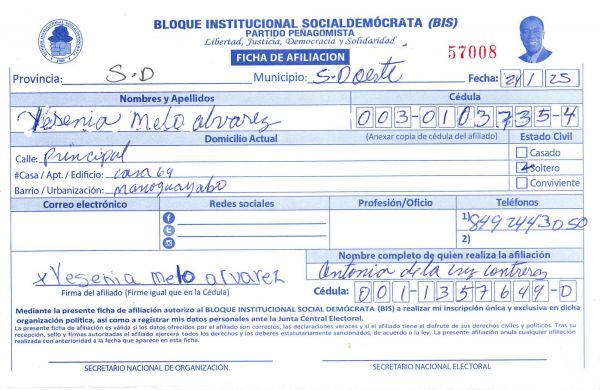 BLOQUE INSTITUCIONAL SOCIALDEMÓCRATA (BIS)
PARTIDO PEÑAGOMISTA
Libertad, Justicia, Democracia y Solidaridad
FICHA DE AFILIACION
57008
Provincia: S.D Municipio: S.D oeste Fecha: 21/1/25
Nombres y Apellidos Cédula
Yesenia Melo alvarez 003-0103735-4
Domicilio Actual (Anexar copia de cédula del afiliado) Estado Civil
Calle: Principal Casado
#Casa / Apt. / Edificio: casa 69 Soltero
Barrio / Urbanización: Manoguayabo Conviviente
Correo electrónico Redes sociales Profesión/Oficio Teléfonos
1) 8492443050
2)
Nombre completo de quien realiza la afiliación
x Yesenia Melo alvarez Antonia de la Cruz contreras
Firma del afiliado (Firme igual que en la Cédula) Cédula: 001-1357649-0
Mediante la presente ficha de afiliación autorizo al BLOQUE INSTITUCIONAL SOCIAL DEMÓCRATA (BIS) a realizar mi inscripción única y exclusiva en dicha
organización política, así como a registrar mis datos personales ante la Junta Central Electoral.
La presente ficha de afiliación es válida si los datos ofrecidos por el afiliado son correctos, las declaraciones veraces y si el afiliado tiene el disfrute de sus derechos civiles y políticos. Tras su
recepción, sello y firmas autorizadas el afiliado ejercerá todos los derechos y los deberes estatutariamente sancionados, de acuerdo a la ley. La presente afiliación anula cualquier afiliación
realizada con anterioridad a la fecha que aparece en esta ficha.
SECRETARIO NACIONAL DE ORGANIZACIÓN SECRETARIO NACIONAL ELECTORAL